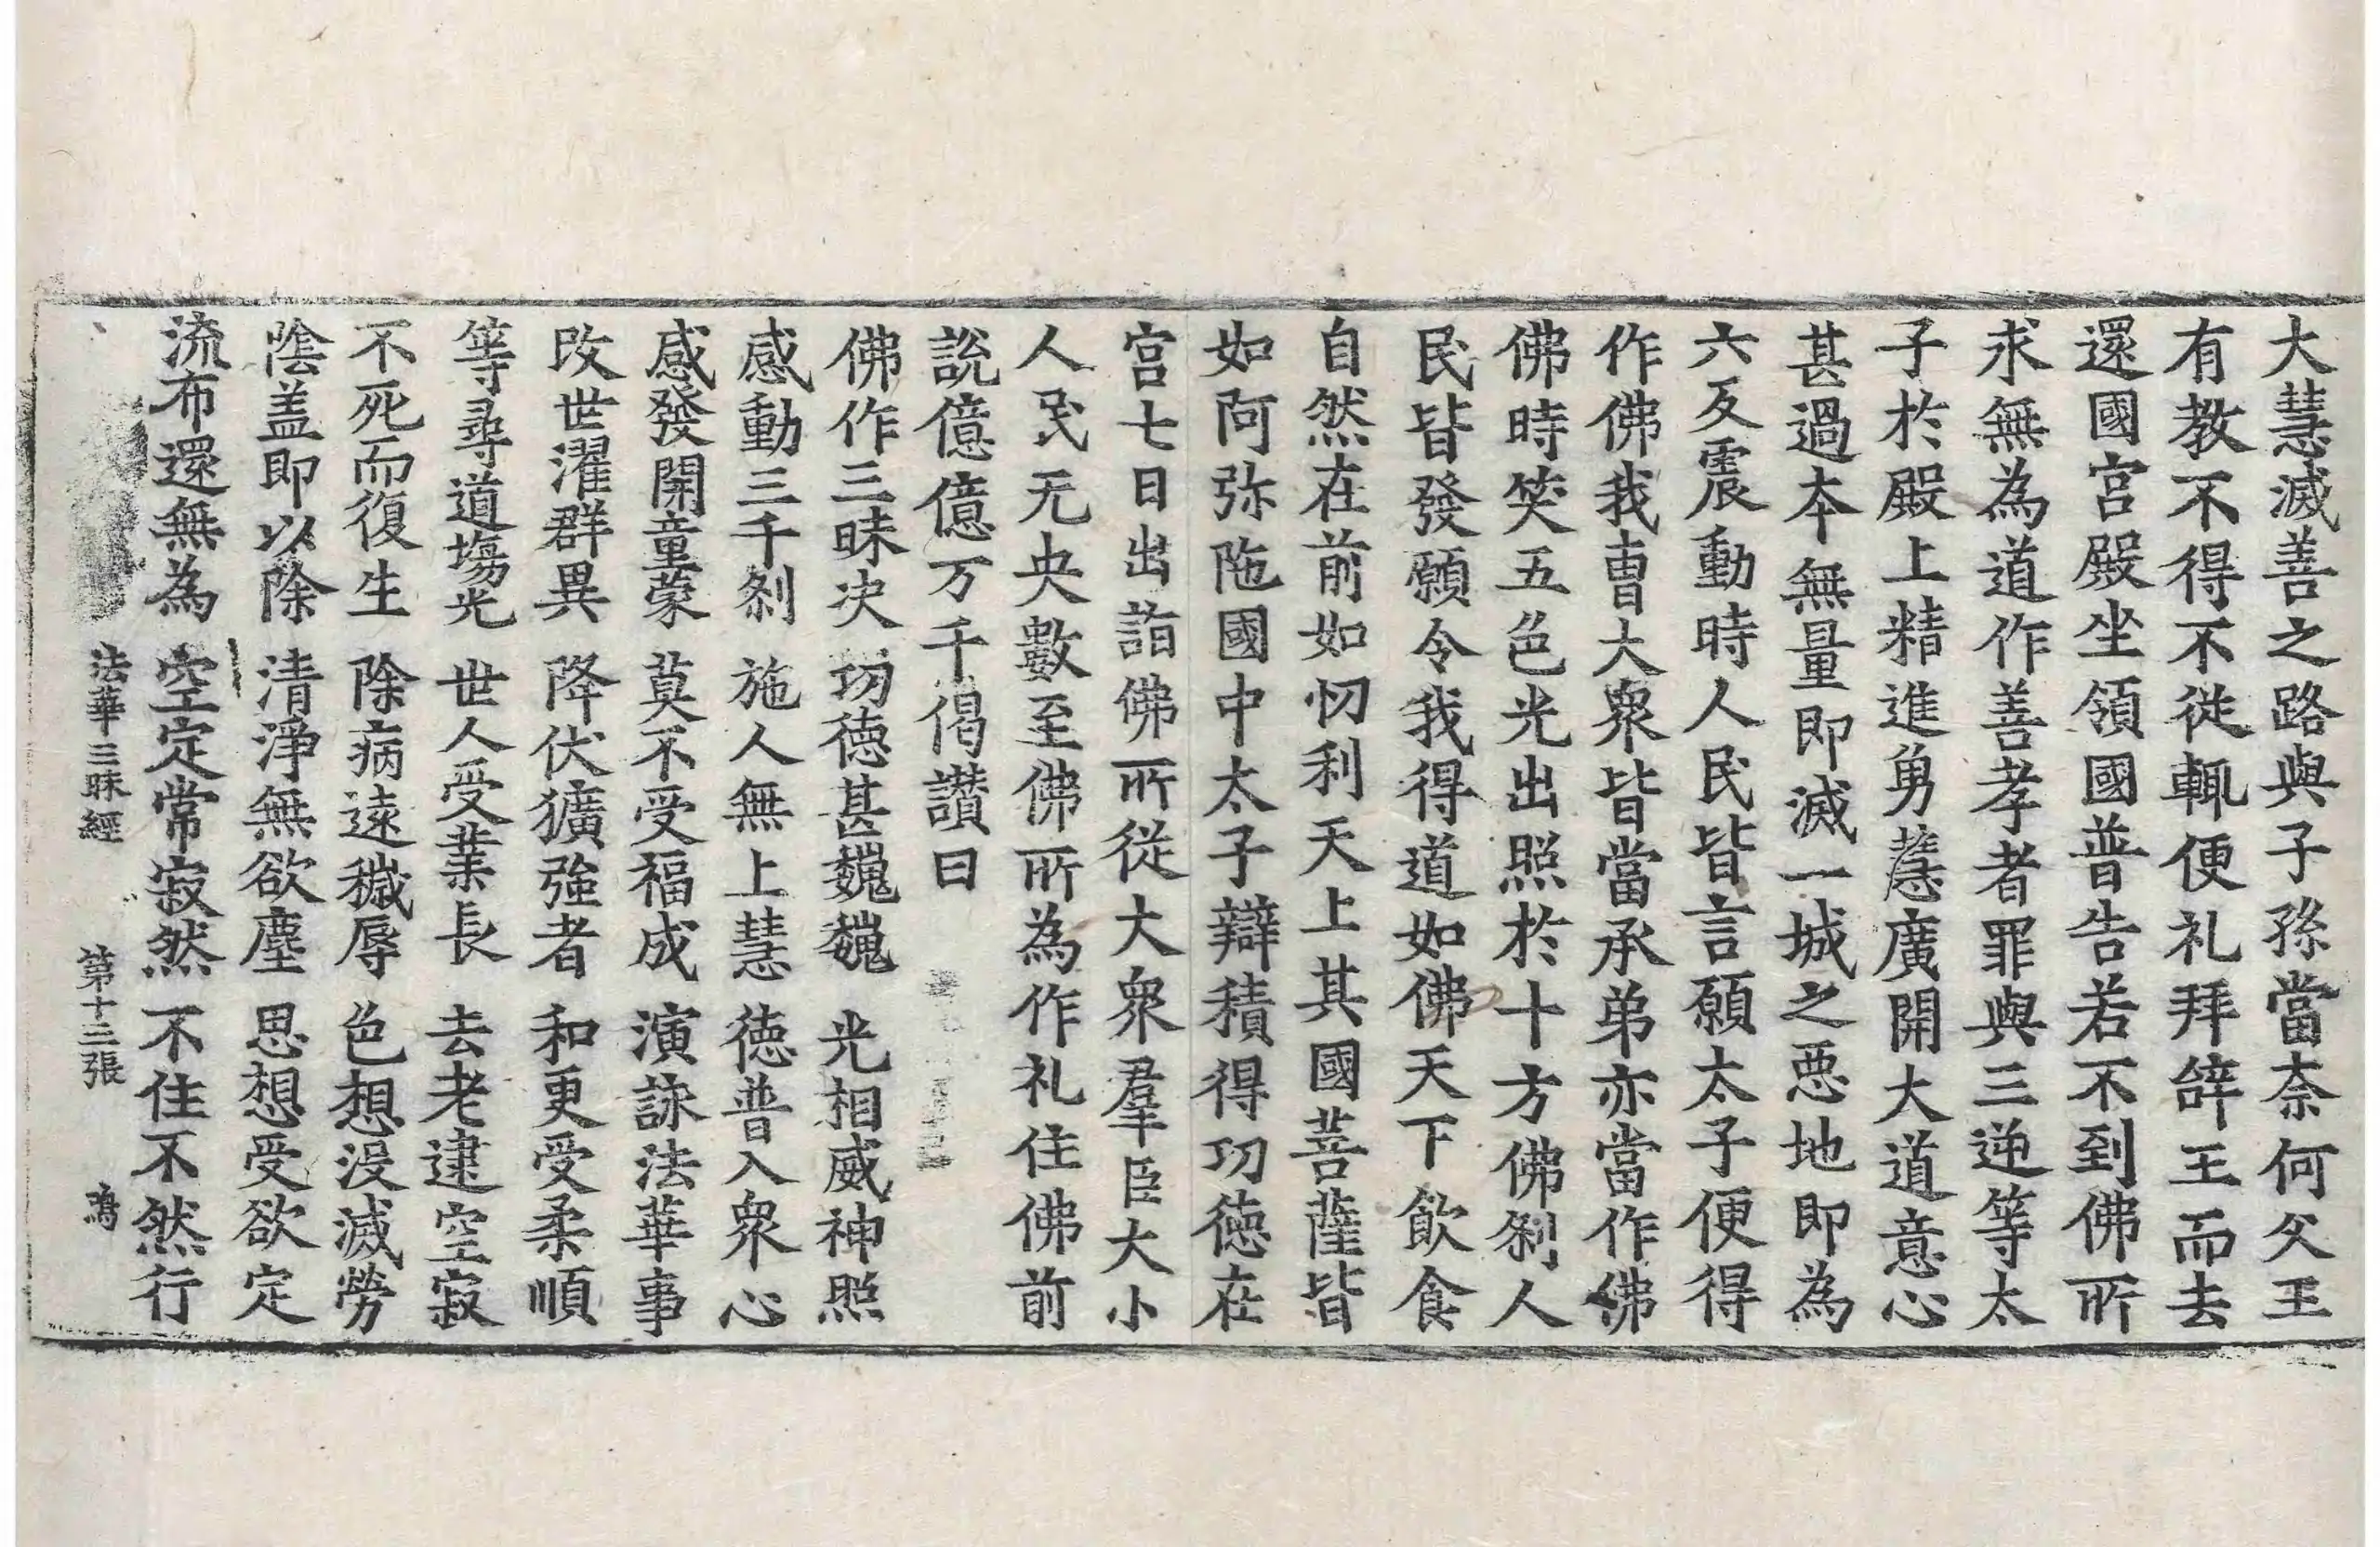 大慧滅善之路與子孫當奈何父王
有教不得不從輒便礼拜辝王而去
還國宮殿坐領國普告若不到佛所
求無為道作善孝者罪與三逆等太
子於殿上精進勇慧廣開大道意心
甚過本無量即滅一城之惡地即為
六反震動時人民皆言願太子便得
作佛我曹大衆皆當承弟亦當作佛
佛時笑五色光出照於十方佛刹人
民皆發願令我得道如佛天下飲食
自然在前如忉利天上其國菩薩皆
如阿弥陁國中太子辯積得功德在
宮七日出詣佛所從大衆羣臣大小
人民无央數至佛所為作礼住佛前
說億億万千偈讃曰
佛作三昧决　功德甚巍巍　光相威神照
感動三千刹　施人無上慧　德普入衆心
感發開童蒙　莫不受福成　演詠法華事
改世濯群異　降伏獷強者　和更受柔順
等尋道場光　世人受業長　去老逮空寂
不死而復生　除病遠穢辱　色想沒滅勞
陰盖即以除　清淨無欲塵　思想受欲定
流布還無為　空定常寂然　不住不然行
法華三昧經　第十三張